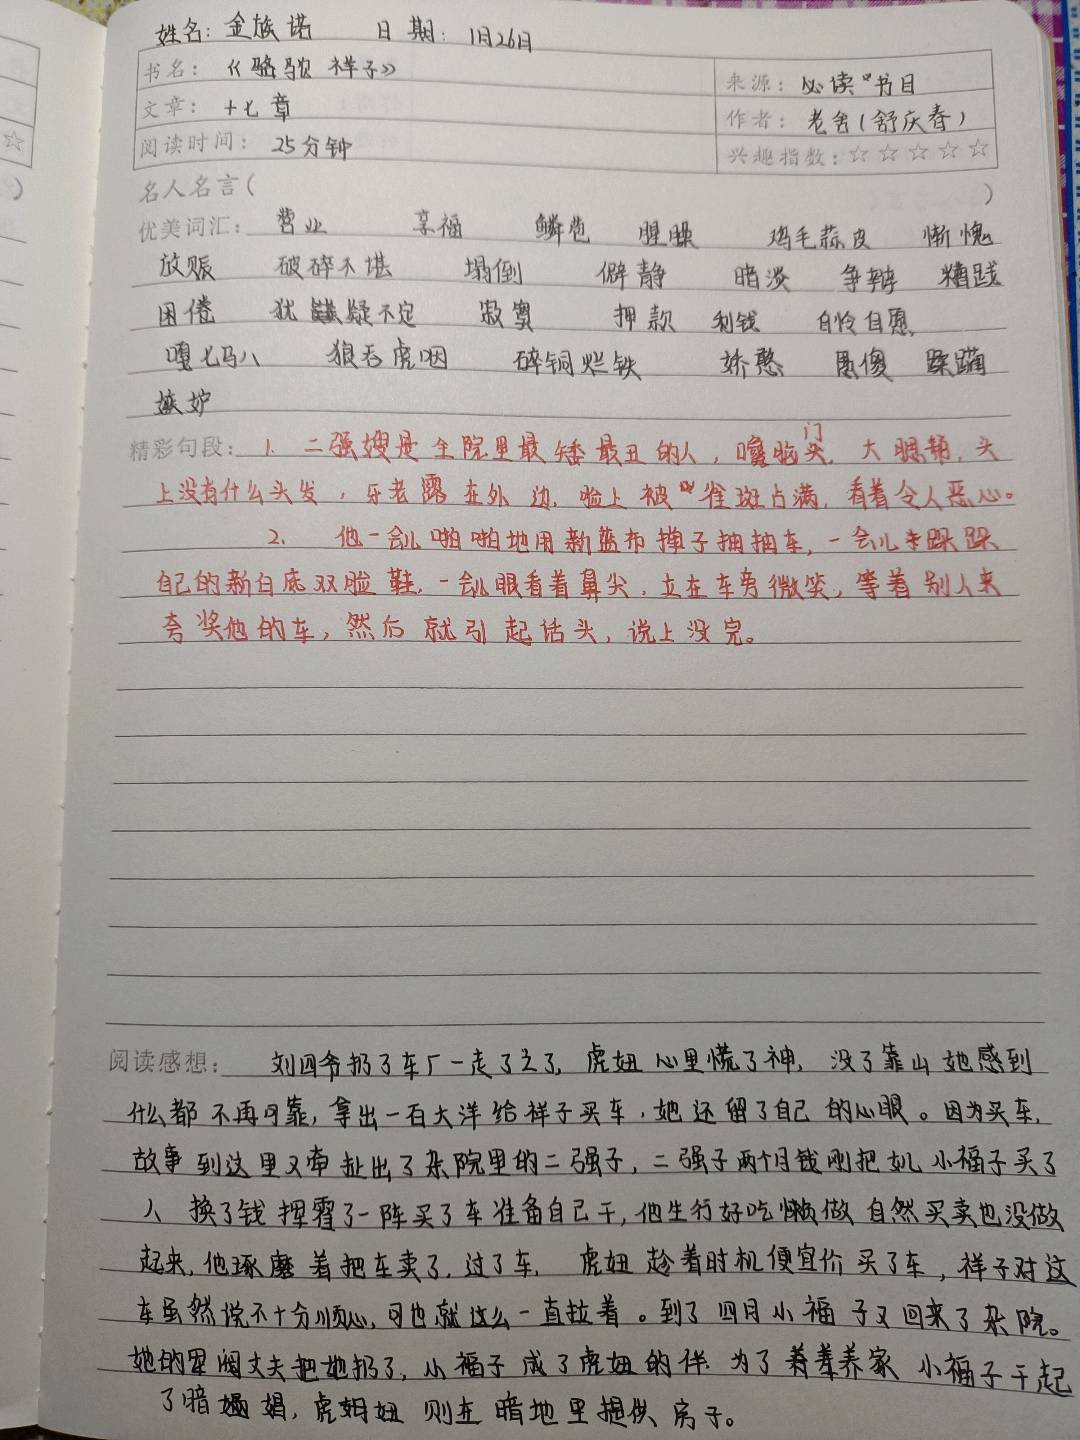 姓名: 金族诺 日期: 1月26日
书名: 《骆驼祥子》 来源: 必读"书目
文章: 十七章 作者: 老舍(舒庆春)
阅读时间: 25分钟 兴趣指数: ☆☆☆☆☆
名人名言( )
优美词汇: 营业 享福 鳞苞 腥臊 鸡毛蒜皮 惭愧
放赈 破碎不堪 塌倒 僻静 暗淡 争辩 糟践
困倦 犹疑不定 寂寞 押款 利钱 自怜自愿
嘎七马八 狼吞虎咽 碎铜烂铁 娇憨 蹂躏
嫉妒
精彩句段: 1. 二强嫂是全院里最矮最丑的人, 脑门, 大腮帮, 头
上没有什么头发, 牙老露在外边, 脸上被雀斑占满, 看着令人恶心。
2. 他一会儿啪啪地用新蓝布掸子抽抽车, 一会儿跺跺
自己的新白底双脸鞋, 一会儿眼看着鼻尖, 立在车旁微笑, 等着别人来
夸奖他的车, 然后就引起话头, 说上没完。
阅读感想: 刘四爷扔了车厂一走了之了, 虎妞心里慌了神, 没了靠山她感到
什么都不再可靠, 拿出一百大洋给祥子买车, 她还留了自己的心眼。因为买车,
故事到这里又牵扯出了杂院里的二强子, 二强子两个月钱刚把女儿小福子买了
人 换了钱挥霍了一阵买了车准备自己干, 他生行好吃懒做自然买卖也没做
起来, 他琢磨着把车卖了, 过了车, 虎妞趁着时机便宜价买了车, 祥子对这
车虽然说不十分顺心, 可也就这么一直拉着。到了四月小福子又回来了杂院。
她的军阀丈夫把她扔了, 小福子成了虎妞的伴. 为了养家小福子干起
了暗娼, 虎妞则在暗地里提供房子。